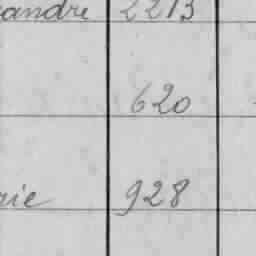 andre 2213
620
rie 928